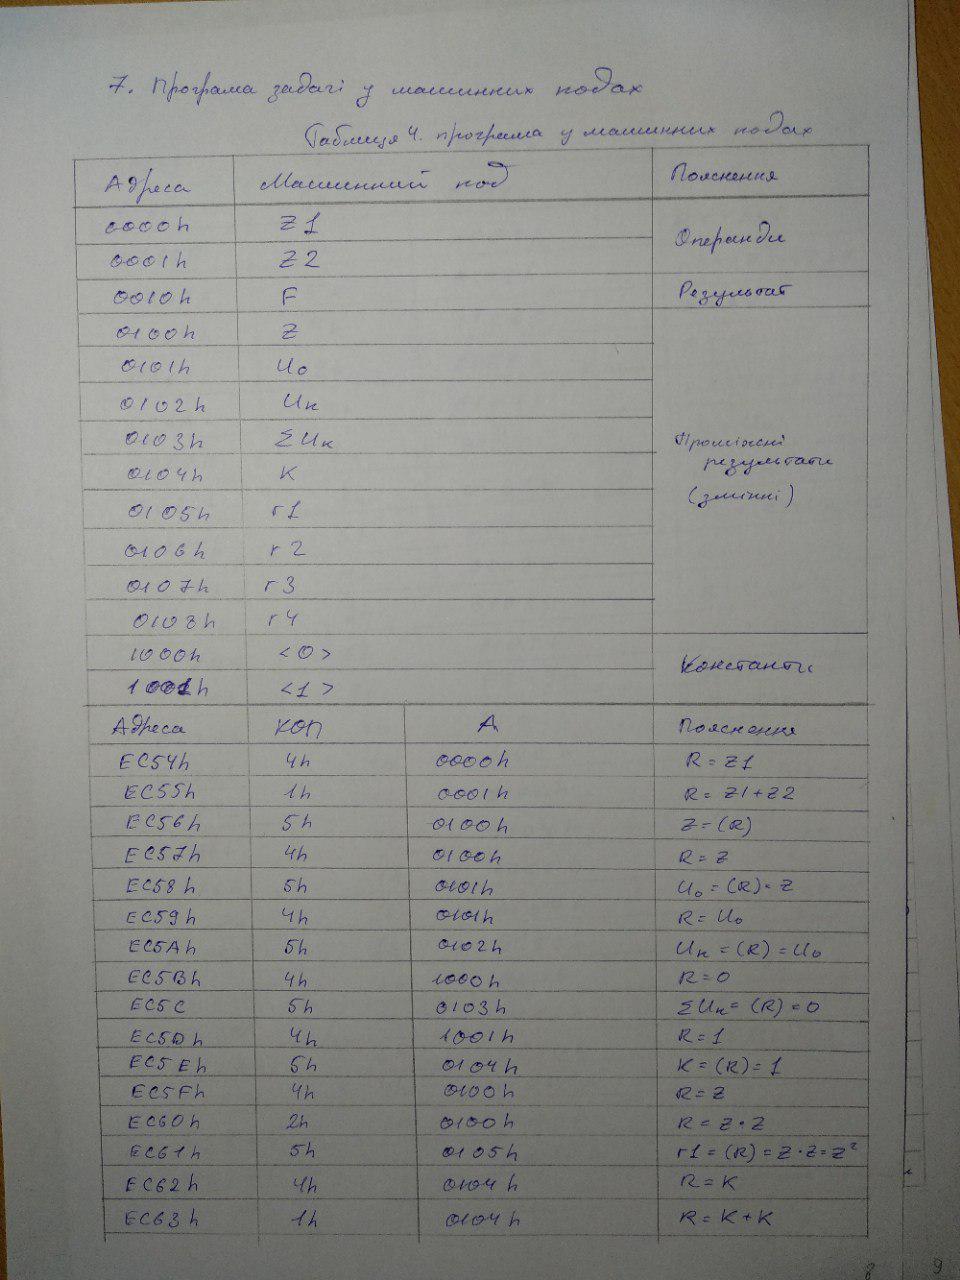 7. Програма задачі у машинних кодах
Таблиця 4. програма у машинних кодах
Адреса Машинний код Пояснення
0000h Z1 Операнди
0001h Z2
0010h F Результат
0100h Z
0101h U0
0102h Uк
0103h ΣUк Проміжні
результати
0104h K (змінні)
0105h r1
0106h r2
0107h r3
0108h r4
1000h <0> Константи
1001h <1>
Адреса КОП А Пояснення
EC54h 4h 0000h R = Z1
EC55h 1h 0001h R = Z1+Z2
EC56h 5h 0100h Z = (R)
EC57h 4h 0100h R = Z
EC58h 5h 0101h U0 = (R) = Z
EC59h 4h 0101h R = U0
EC5Ah 5h 0102h Uк = (R) = U0
EC5Bh 4h 1000h R = 0
EC5C 5h 0103h ΣUк = (R) = 0
EC5Dh 4h 1001h R = 1
EC5Eh 5h 0104h K = (R) = 1
EC5Fh 4h 0100h R = Z
EC60h 2h 0100h R = Z·Z
EC61h 5h 0105h r1 = (R) = Z·Z = Z²
EC62h 4h 0104h R = K
EC63h 1h 0104h R = K+K
8 9